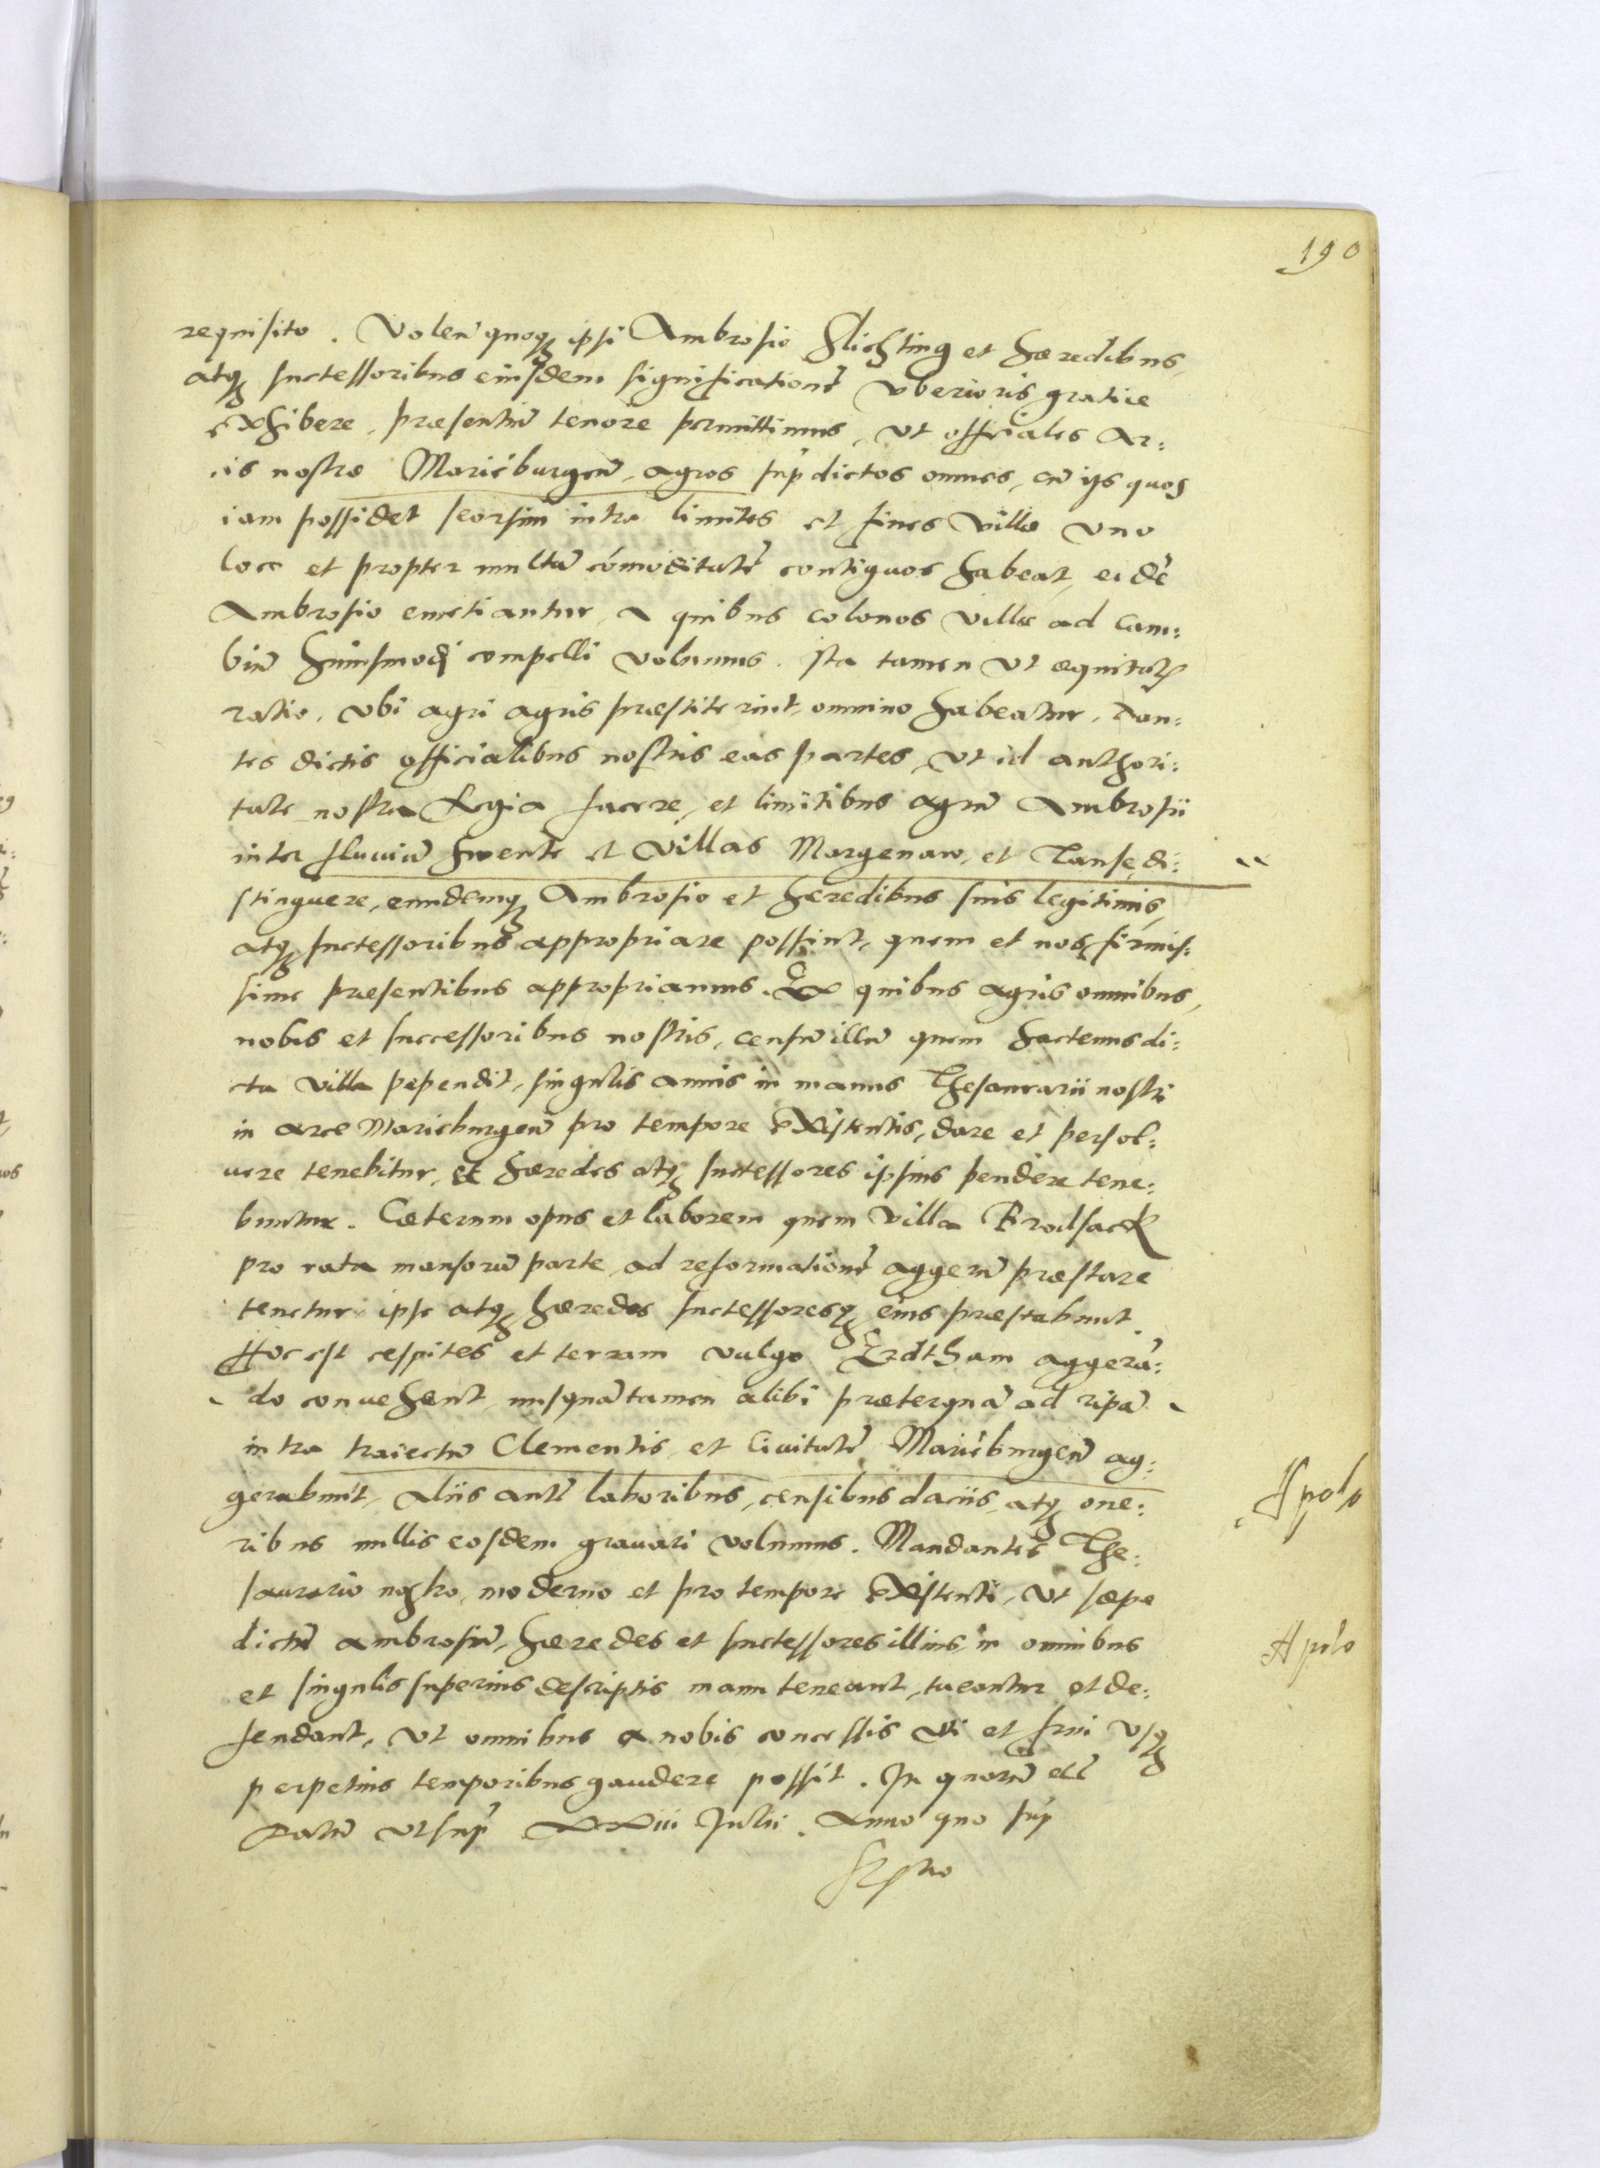 190
requisito. Volen quoq ipsi Ambrosio Flichting et hæredibus,
atq successoribus eiusdem significatione vberioris gratiæ
exhibere, præsentiu tenore permittimus, vt officiales Ar:
cis nostræ Marieburgen, agros sup dictos omnes, cu ijs quos
iam possidet seorsim intra limites et fines villæ vno
loco et propter multa comoditate contiguos habeat, eide
Ambrosio emetiantur, a quibus colonos villæ ad Cam:
biu huiusmodi compelli volumus. Ita tamen vt æquitatis
ratio, vbi agri agris præstiterint, omnino habeatur, Dan:
tes dictis officialibus nostris eas partes, vt id authori:
tate nostra Regia facere, et limitibus agru Ambrosii
inter fluuiu Swente et Villas Morgenaw, et Tanse, di:
stinguere, eundemq Ambrosio et hæredibus suis legitimis,
atq successoribus appropriare possint, quem et nos firmis:
sime præsentibus appropriamus. Ex quibus agris omnibus,
nobis et successoribus nostris, censu illu quem hactenus di:
cta villa pependit, singulis annis in manus Thesaurarii nostri
in arce Marieburgen pro tempore existentis, dare et persol:
uere tenebitur, et hæredes atq successores ipsius pendere tene:
buntur. Cæterum opus et laborem quem villa Brodsack
pro rata mansoru parte, ad reformatione aggeru præstare
tenetur, ipse atq hæredes successoresq eius præstabunt.
Hoc est cespites et terram vulgo Erdtham aggera:
do conuehent, nusqua tamen alibi præterqua ad ripa
intra traiectu Clementis et Ciuitate Marieburgen ag:
gerabunt, Aliis aute laboribus, censibus daciis, atq one:
ribus nullis eosdem grauari volumus. Mandantes The:
saurario nostro, moderno et pro tempore existenti, vt sæpe
dictu Ambrosiu, hæredes et successores illius, in omnibus
et singulis superius descriptis manu teneant, tueantur et de:
fendant, vt omnibus a nobis concessis vti et frui vsq
perpetuis temporibus gaudere possit. In quoru etc
Datu vt sup XXiii Julii. Anno quo sup